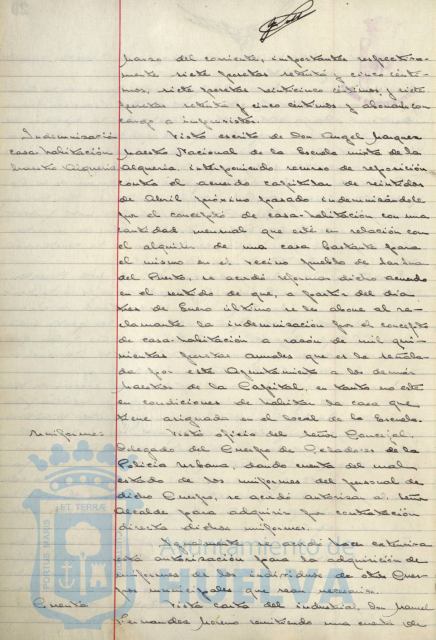 Marzo del corriente, importantes respectiva-
mente siete pesetas setenta y cinco cénti-
mos, siete pesetas veinticinco céntimos y siete
pesetas setenta y cinco céntimos y abonar con
cargo a imprevistos.
Indemnización
casa-habitación
Maestro Alquería
Visto escrito de Don Angel Marquez
Maestro Nacional de la Escuela mixta de la
Alquería, interponiendo recurso de reposición
contra el acuerdo capitular de veintidos
de Abril próximo pasado indemnizándole
por el concepto de casa-habitación con una
cantidad mensual que esté en relación con
el alquiler de una casa bastante para
el mismo en el vecino pueblo de San Juan
del Puerto, se acordó reformar dicho acuerdo
en el sentido de que, a partir del dia
tres de Enero último se le abone al re-
clamante la indemnización por el concepto
de casa-habitación a razón de mil qui-
nientas pesetas anuales que es la señala-
da por este Ayuntamiento a los demás
Maestros de la Capital, en tanto no esté
en condiciones de habitar la casa que
tiene asignada en el local de la Escuela.
Uniformes
Visto oficio del Señor Concejal
Delegado del Cuerpo de Celadores de la
Policía Urbana, dando cuenta del mal
estado de los uniformes del personal de
dicho Cuerpo, se acordó autorizar al Señor
Alcalde para adquirir por contratación
directa dichos uniformes.
Igualmente se acordó hacer extensiva
esta autorización para la adquisición de
uniformes de los individuos de otros Cuer-
pos municipales que sean necesarios.
Cuenta
Visto carta del industrial Don Manuel
Fernandez Moreno remitiendo una cuenta de
PORTUS MARIS ET TERRAE
Ayuntamiento de
HUELVA